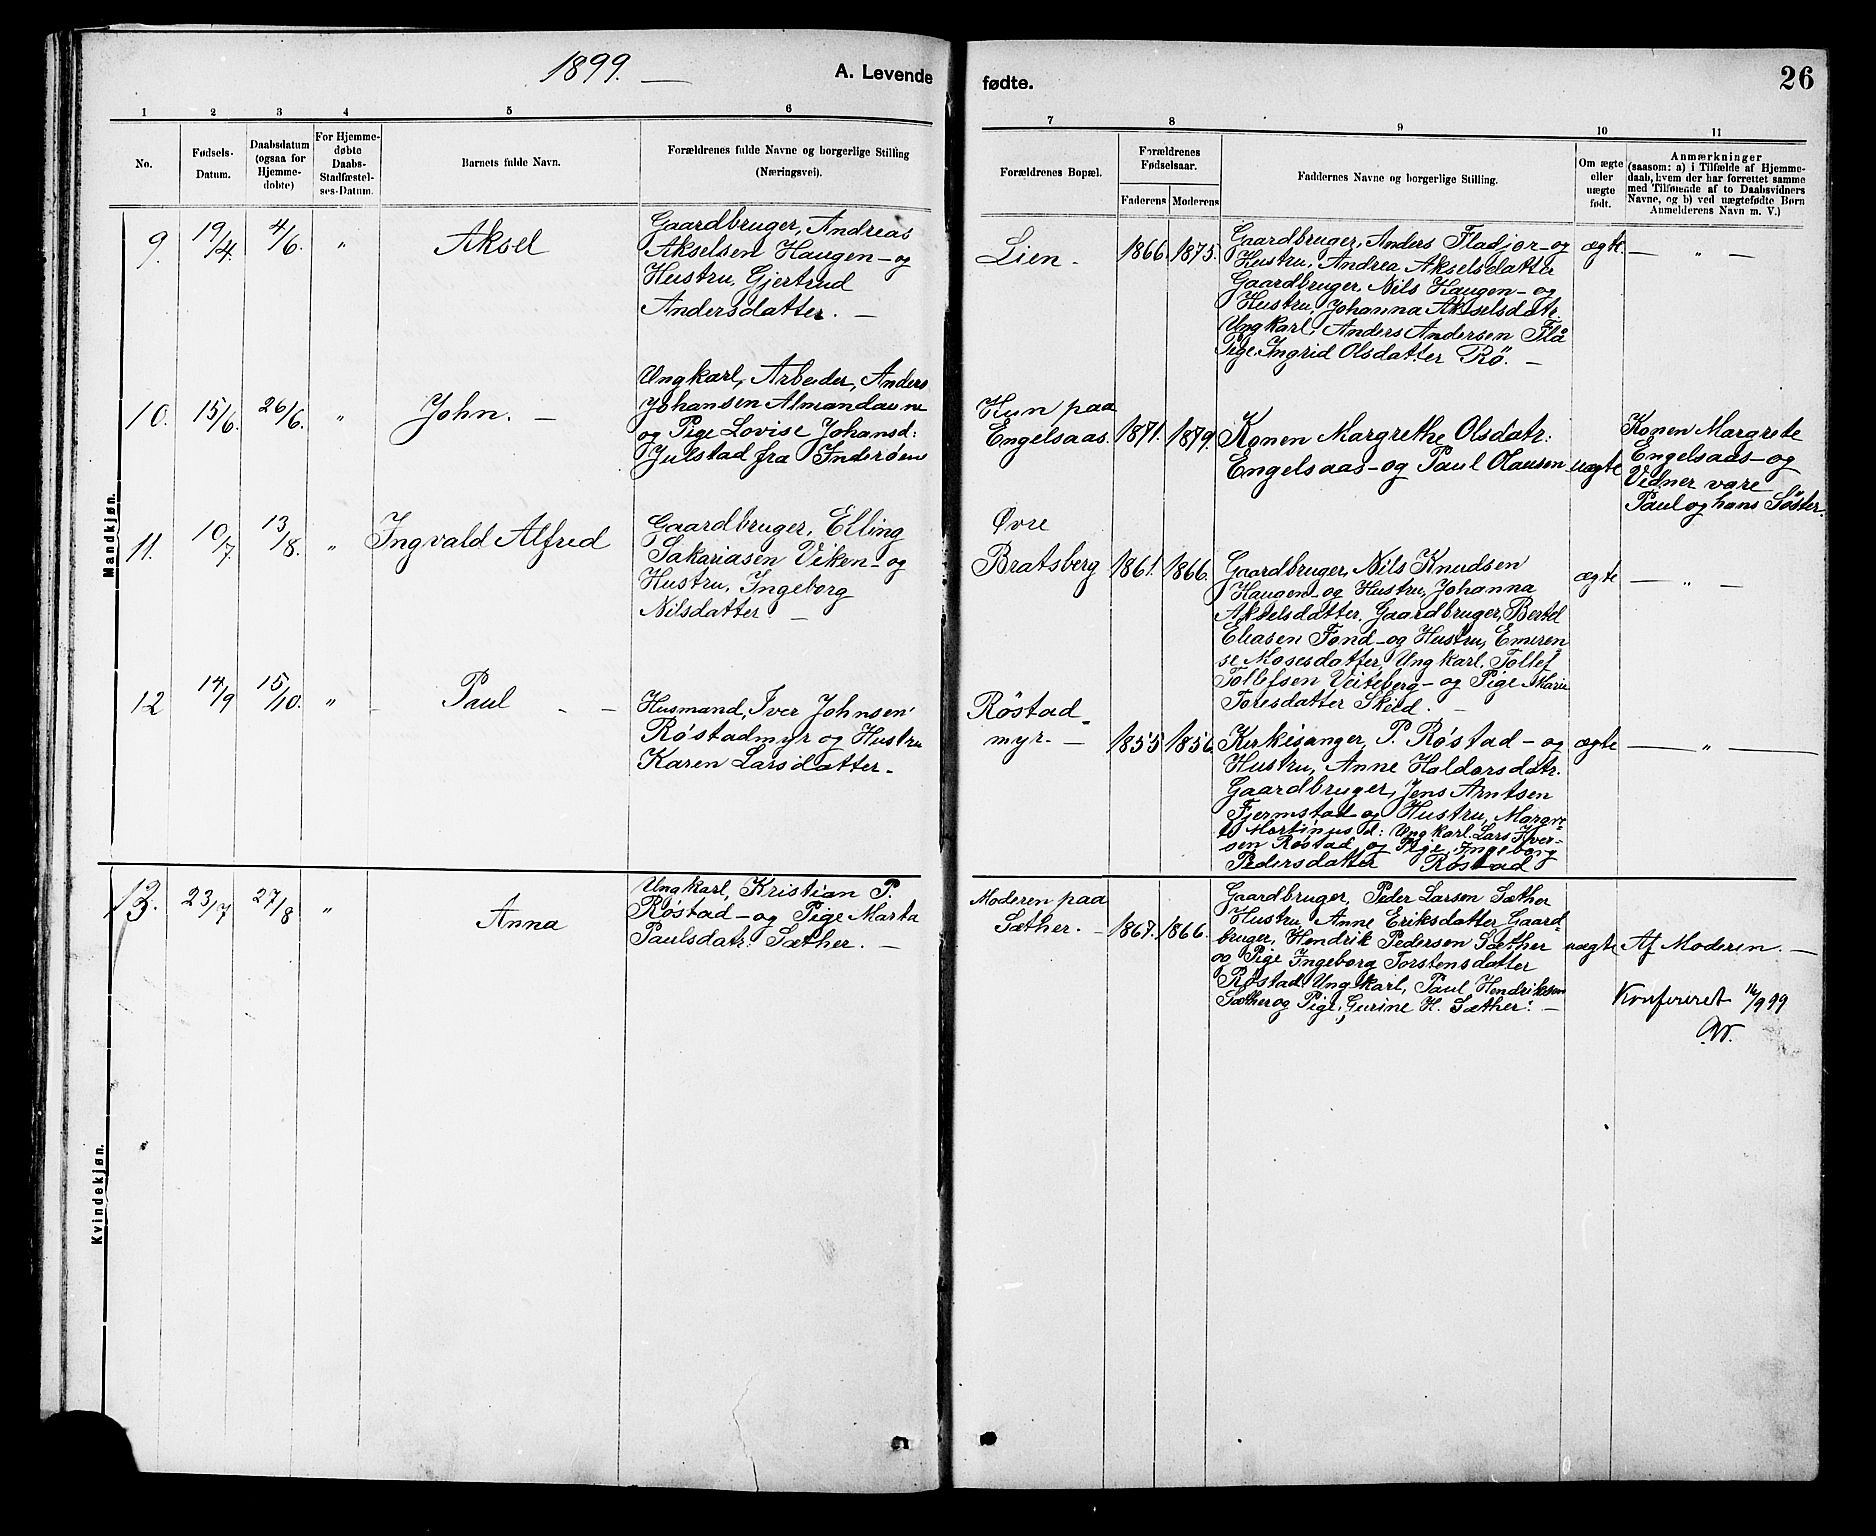 1899. —
A. Levende
1
2
3
4
5
6
No.
Fødsels-
Datum.
Daabsdatum
(ogsaa for
Hjemme-
døbte)
For Hjemme-
døbte
Daabs-
Stadfæstel-
ses-Datum.
Barnets fulde Navn.
Forældrenes fulde Navne og borgerlige Stilling
(Næringsvei).
Mandkjøn.
9.
19/4.
4/6.
"
Aksel
Gaardbruger, Andreas
Akselsen Haugen - og
Hustru, Gjertrud
Andersdatter. —
10.
15/6.
26/6.
"
John. —
Ungkarl, Arbeider, Anders
Johansen Almandaune
og Pige Lovise Johansd:
Julstad fra Inderøen
11.
10/7.
13/8.
"
Ingvald Alfred
Gaardbruger, Elling
Sakariasen Viken - og
Hustru, Ingeborg
Nilsdatter —
12
14/9
15/10.
"
Paul
Husmand, Iver Johnsen
Røstadmyr og Hustru
Karen Larsdatter.
Kvindekjøn.
13.
23/7
27/8
"
Anna
Ungkarl, Kristian P.
Røstad - og Pige Marta
Paulsdatr. Sæther. —
fødte.
26
7
8
9
10
11
Forældrenes Bopæl.
Forældrenes
Fødselsaar.
Faderens
Moderens
Faddernes Navne og borgerlige Stilling.
Om ægte
eller
uægte
født.
Anmærkninger
(saasom: a) i Tilfælde af Hjemme-
daab, hvem der har forrettet samme
med Tilføiende af to Daabsvidners
Navne, og b) ved uægtefødte Børn
Anmelderens Navn m. V.)
Lien.
1866.
1875.
Gaardbruger, Anders Fladjor - og
Hustru, Andrea Akselsdatter
Gaardbruger, Nils Haugen - og
Hustru, Johanna Akselsdatr.
Ungkarl, Anders Andersen Flå
Pige, Ingrid Olsdatter Rö. —
ægte.
— " —
Hun paa
Engelsaas.
1871.
1879.
Konen Margrethe Olsdatr:
Engelsaas - og Paul Olausen
uægte
Konen Margrete
Engelsaas - og
Vidner vare
Paul og hans Söster.
Øvre
Bratsberg
1861.
1866.
Gaardbruger, Nils Knudsen
Haugen - og Hustru, Johanna
Akselsdatter. Gaardbruger,
Eliasen Fond - og Hustru, Emeren
se Mosesdatter, Ungkarl, Tollef
Tollefsen Veiteberg - og Pige Marie
Toresdatter
ægte
— " —
Røstad-
myr. —
1855
1856.
Kirkesanger, P. Røstad - og
Hustru, Anne Haldorsdatr.
Gaardbruger, Jens Arntsen
Fjermstad og Hustru, Margre-
te Martinusd: Ungkarl. Lars Iver-
sen Røstad og Pige, Ingeborg
Pedersdatter Røstad
ægte
— " —
Moderen paa
Sæther. —
1867.
1866.
Gaardbruger, Peder Larsen Sæther
Hustru Anne Eriksdatter, Gaard-
bruger, Hendrik Pedersen Sæther
og Pige Ingeborg Torstensdatter
Røstad, Ungkarl, Paul Hendriksen
Sæther og Pige, Gurine H. Sæther: —
uægte
Af Moderen. —
Konfereret 14/9 99